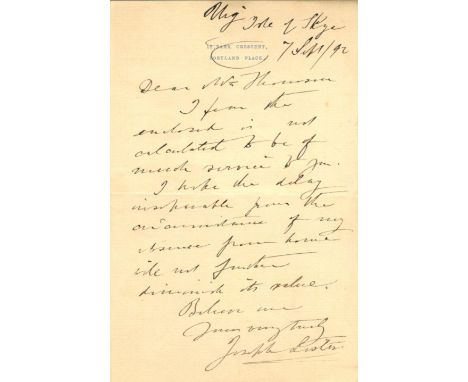 Uig Isle of Skye
12, PARK CRESCENT,
PORTLAND PLACE.
7 Sept/92
Dear Mr Thomson
I fear the
enclosed is not
calculated to be of
much service to you.
I hope the delay
inseparable from the
circumstance of my
absence from home
will not further
diminish its value.
Believe me
Yours very truly
Joseph Lister.